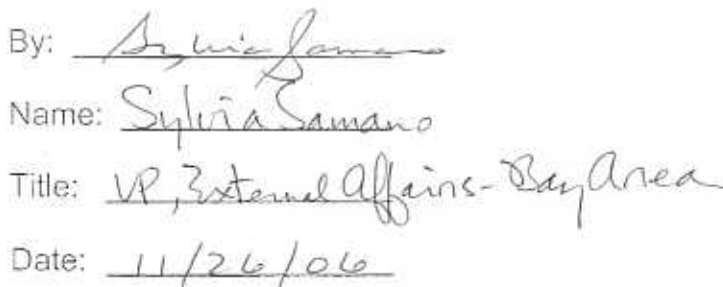 By: Sylvia Samano
Name: Sylvia Samano
Title: VP, External Affairs - Bay Area
Date: 11/26/06